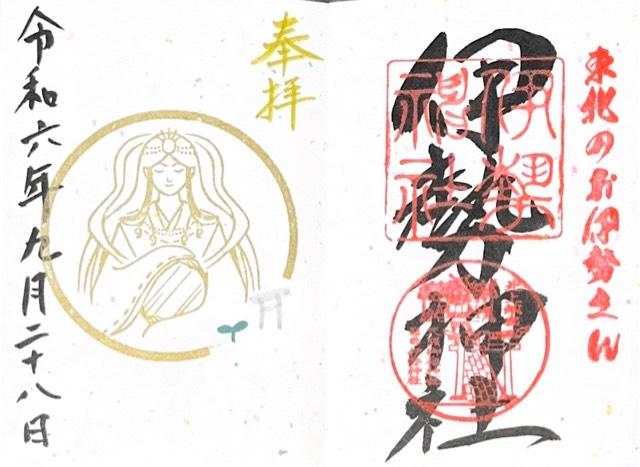 東北のお伊勢さん
伊勢神社
奉拝
令和六年九月二十八日